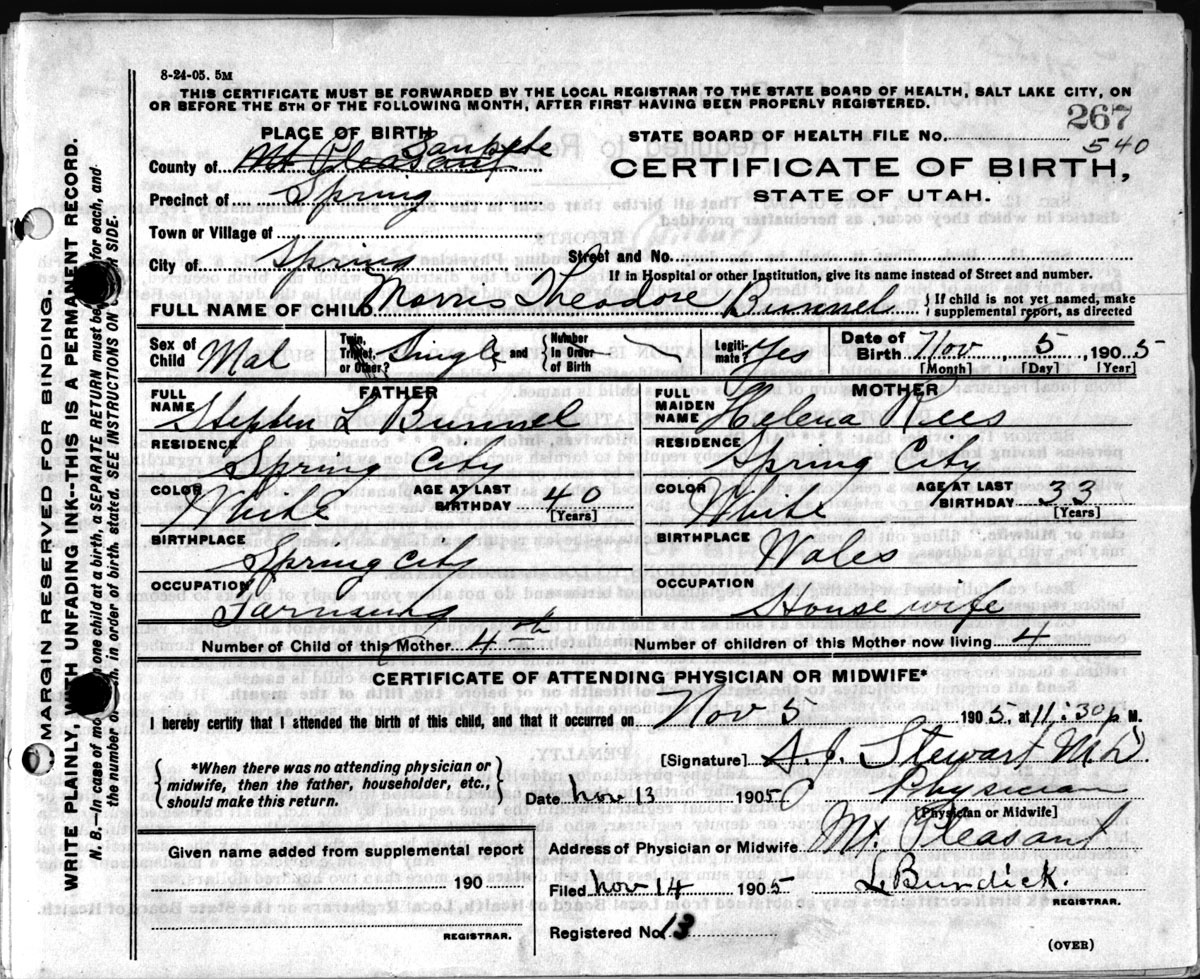 8-24-05. 5M
THIS CERTIFICATE MUST BE FORWARDED BY THE LOCAL REGISTRAR TO THE STATE BOARD OF HEALTH, SALT LAKE CITY, ON
OR BEFORE THE 5TH OF THE FOLLOWING MONTH, AFTER FIRST HAVING BEEN PROPERLY REGISTERED.
267
PLACE OF BIRTH
STATE BOARD OF HEALTH FILE No. 540
Sanpete
County of Mt Pleasant
CERTIFICATE OF BIRTH,
STATE OF UTAH.
Precinct of Spring
Town or Village of
City of Spring Street and No.
If in Hospital or other Institution, give its name instead of Street and number.
FULL NAME OF CHILD Morris Theodore Bunnel { If child is not yet named, make supplemental report, as directed
Sex of Child Mal Twin, Triplet, or Other? Single and { Number in Order of Birth Legiti- mate? Yes Date of Birth Nov 5, 1905
[Month] [Day] [Year]
FATHER MOTHER
FULL NAME Stephen L Bunnel FULL MAIDEN NAME Helena Rees
RESIDENCE Spring City RESIDENCE Spring City
COLOR White AGE AT LAST BIRTHDAY 40 [Years] COLOR White AGE AT LAST BIRTHDAY 33 [Years]
BIRTHPLACE Spring City BIRTHPLACE Wales
OCCUPATION Farmaing OCCUPATION House wife
Number of Child of this Mother 4th Number of children of this Mother now living 4
CERTIFICATE OF ATTENDING PHYSICIAN OR MIDWIFE*
I hereby certify that I attended the birth of this child, and that it occurred on Nov 5 1905, at 11:30 p M.
[Signature] A. J. Stewart M.D.
*When there was no attending physician or
midwife, then the father, householder, etc.,
should make this return.
Date Nov 13 1905 Physician
[Physician or Midwife]
Address of Physician or Midwife Mt. Pleasant
Given name added from supplemental report
190
REGISTRAR.
Filed Nov 14 1905 L Burdick.
REGISTRAR.
Registered No. 13
(OVER)
MARGIN RESERVED FOR BINDING.
WRITE PLAINLY, WITH UNFADING INK--THIS IS A PERMANENT RECORD.
N. B.--In case of more than one child at a birth, a SEPARATE RETURN must be for each, and
the number of each, in order of birth, stated. SEE INSTRUCTIONS ON SIDE.